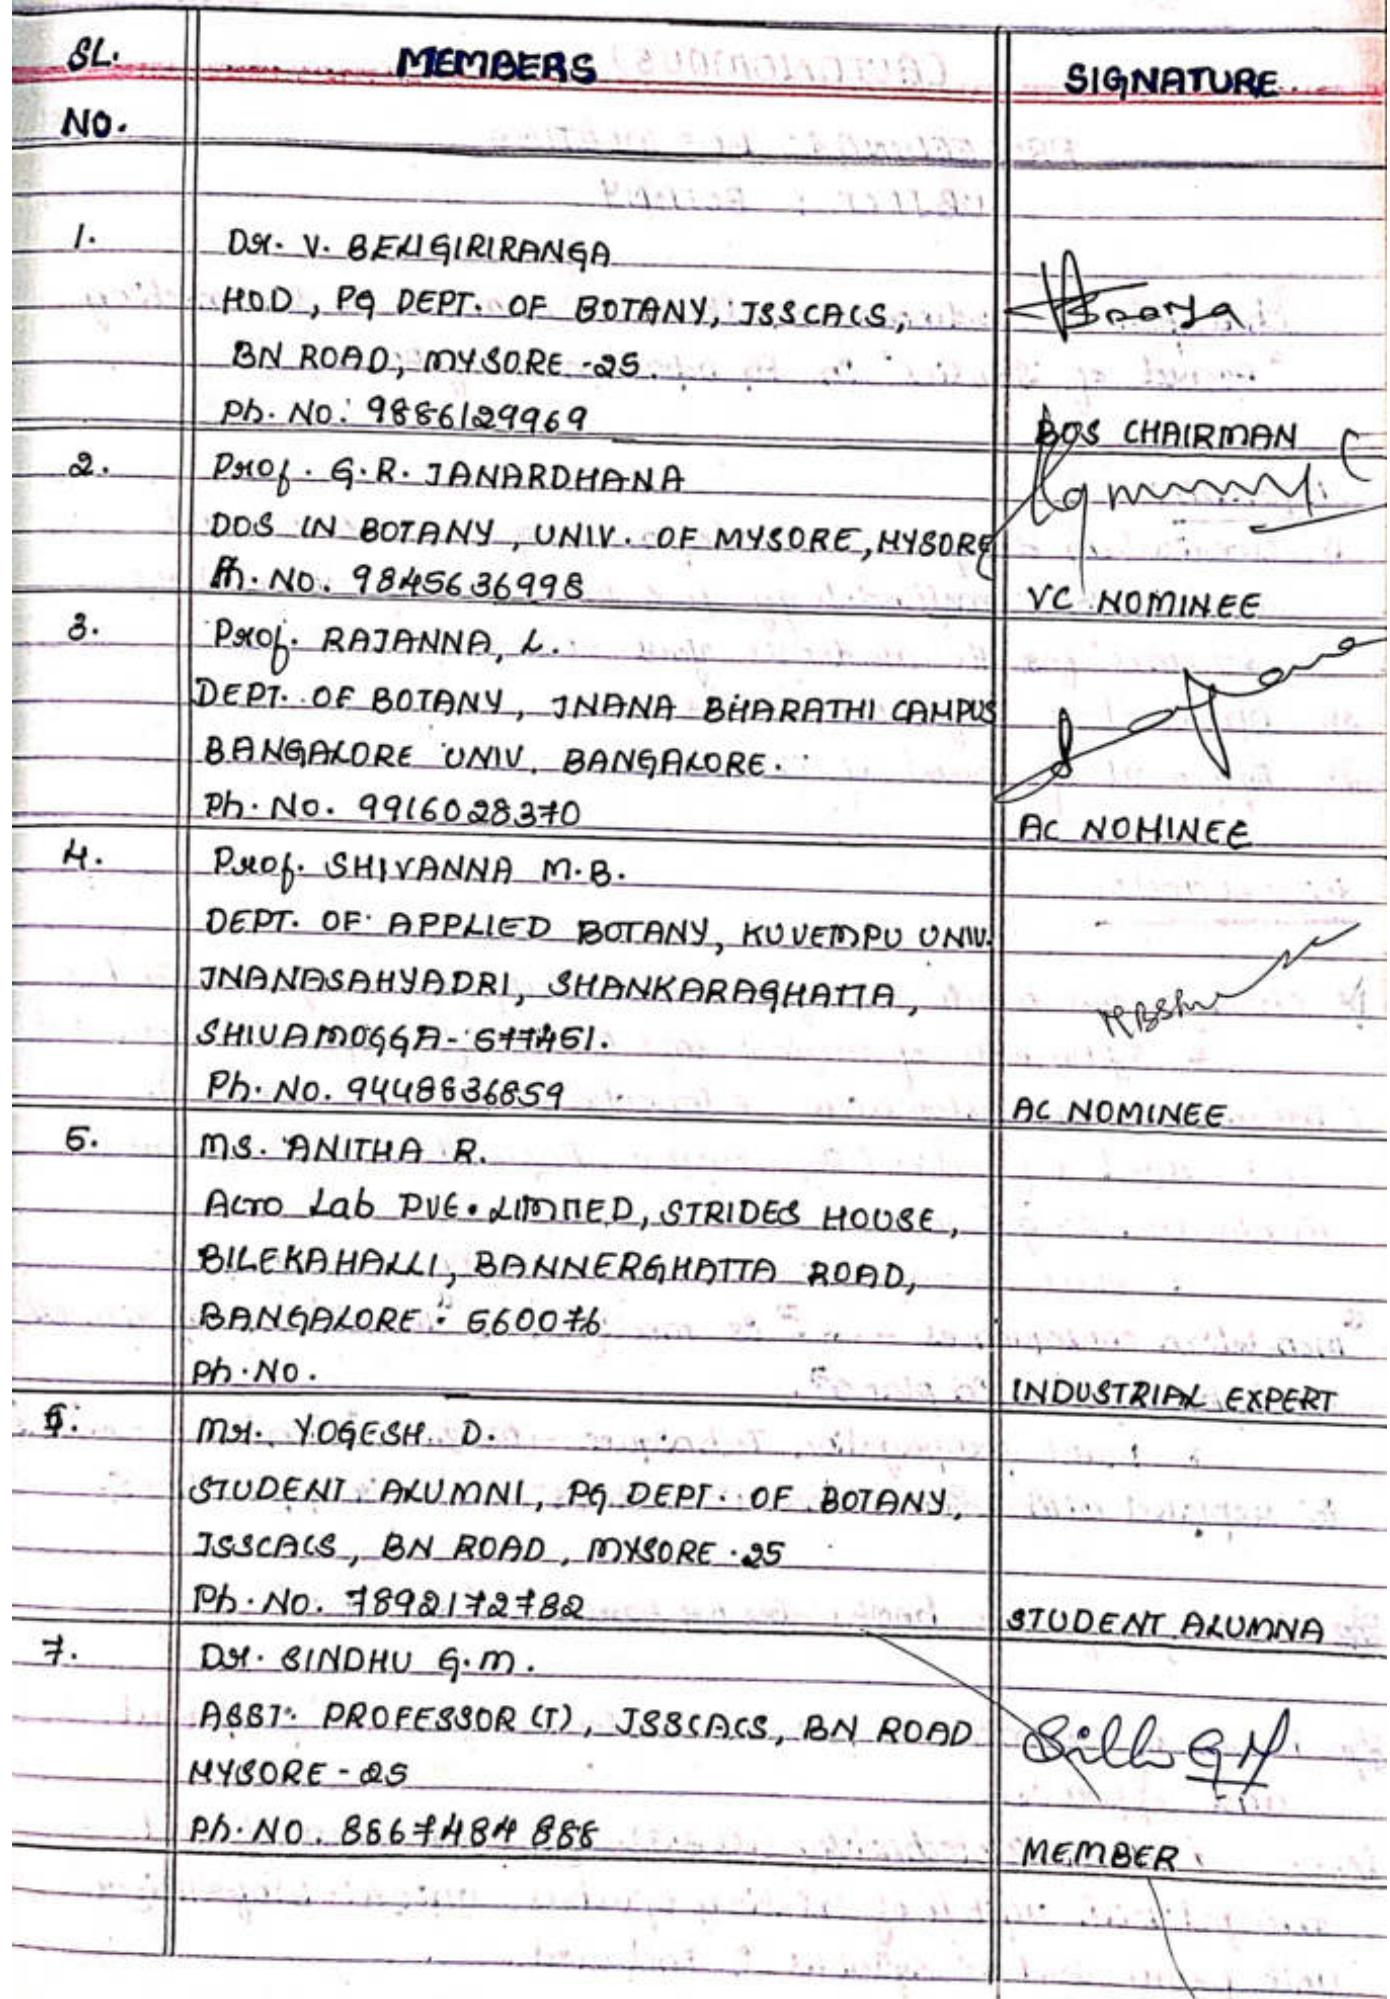 SL. NO.
MEMBERS
SIGNATURE
1.
Dr. V. BELIGIRIRANGA
HOD, PG DEPT. OF BOTANY, JSSCACS,
BN ROAD, MYSORE-25.
Ph. No: 9886129969
BOS CHAIRMAN
2.
Prof. G.R. JANARDHANA
DOS IN BOTANY, UNIV. OF MYSORE, MYSORE
Ph. No. 9845636998
VC NOMINEE
3.
Prof. RAJANNA, L.
DEPT. OF BOTANY, JNANA BHARATHI CAMPUS
BANGALORE UNIV. BANGALORE.
Ph. No. 9916028370
AC NOMINEE
4.
Prof. SHIVANNA M.B.
DEPT. OF APPLIED BOTANY, KUVEMPU UNIV.
JNANASAHYADRI, SHANKARAGHATTA,
SHIVAMOGGA-577451.
Ph. No. 9448836859
AC NOMINEE
5.
MS. ANITHA R.
Acto Lab Pvt. LIMITED, STRIDES HOUSE,
BILEKAHALLI, BANNERGHATTA ROAD,
BANGALORE: 560076
Ph. No.
INDUSTRIAL EXPERT
6.
Mr. YOGESH. D.
STUDENT ALUMNI, PG DEPT. OF BOTANY,
JSSCACS, BN ROAD, MYSORE-25
Ph. No. 7892172782
STUDENT ALUMNA
7.
Dr. SINDHU G.M.
ASST. PROFESSOR (T), JSSCACS, BN ROAD
MYSORE-25
Ph. No. 8867484888
Sindhu GM
MEMBER